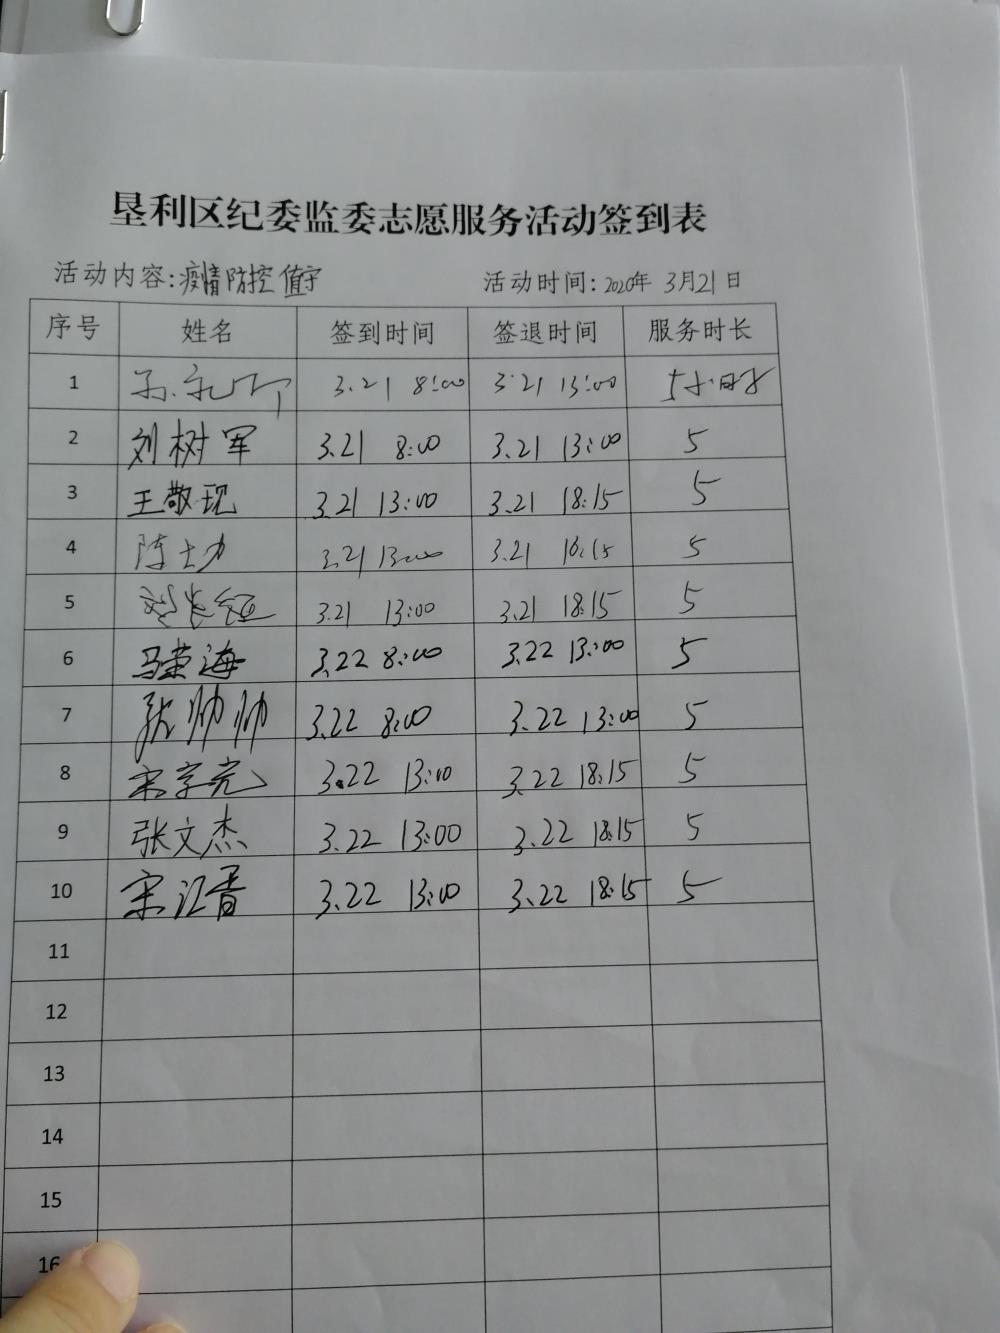 垦利区纪委监委志愿服务活动签到表
活动内容:疫情防控值守 活动时间:2020年 3月21日
序号 姓名 签到时间 签退时间 服务时长
1 3.21 8:00 3.21 13:00 5小时
2 刘树军 3.21 8:00 3.21 13:00 5
3 王敬现 3.21 13:00 3.21 18:15 5
4 陈士力 3.21 13:00 3.21 18:15 5
5 3.21 13:00 3.21 18:15 5
6 马荣海 3.22 8:00 3.22 13:00 5
7 张帅帅 3.22 8:00 3.22 13:00 5
8 宋学亮 3.22 13:00 3.22 18:15 5
9 张文杰 3.22 13:00 3.22 18:15 5
10 宋江香 3.22 13:00 3.22 18:15 5
11
12
13
14
15
16